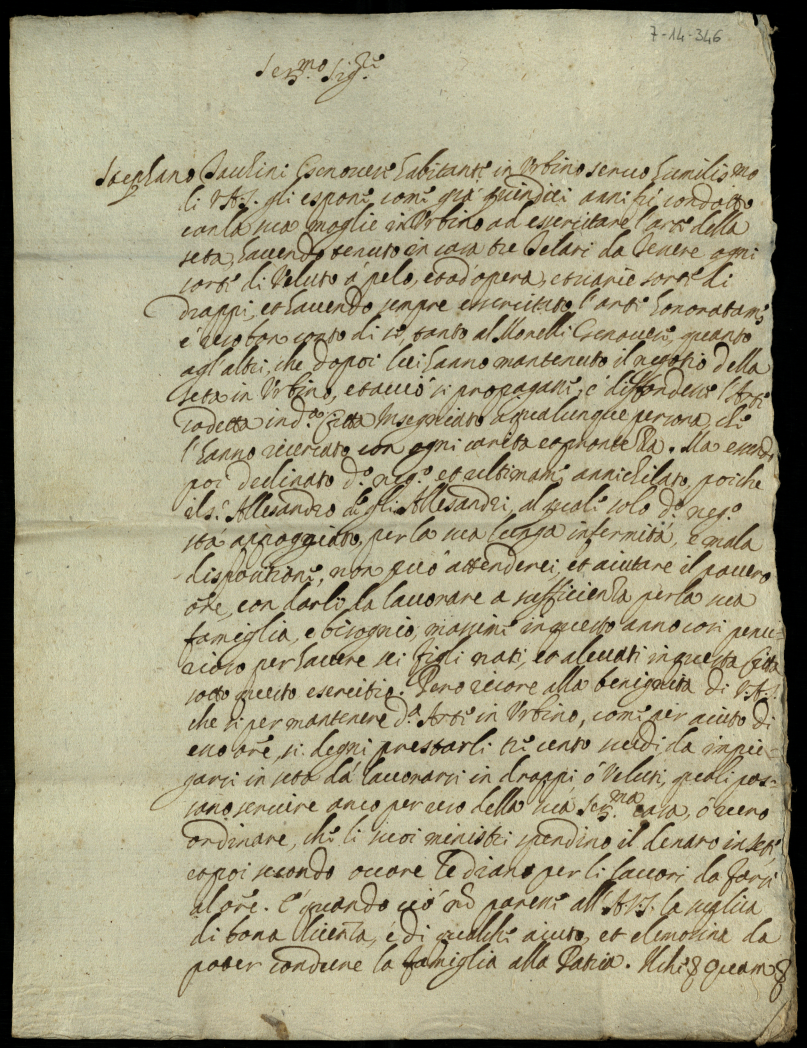 7-14-346
Ser.mo Sig.re
Stephano Paulini Genovese habitante in Urbino servo humiliss.mo
di V.A.S. gli espone come già quindici anni fù condotto
con la sua moglie in Urbino ad essercitare l'arte della
seta, havendo tenuto in casa tre Telari da tenere ogni
sorte di Veluto à pelo, et ad opera, et varie sorte di
drappi, et havendo sempre essercitato l'arte honoratam.e
e reso bon conto di se, tanto al Morelli Genovese, quanto
agl'altri, che dopoi lui hanno mantenuto il negotio della
seta in Urbino, et acciò si propagasse, e diffondesse l'Arte
sodetta in d.a Città Insegniato a qualunque persona, che
l'hanno ricercato con ogni carità et prontezza. Ma essendo
poi declinato d.o neg.o et ultimam.e annichilato, poiche
il S.r Allesandro de gli Allesandri, al quale solo d.o neg.o
stà appoggiato, per la sua lunga infermità, e mala
dispositione, non può attenderci, et aiutare il povero
ore, con darli da lavorare a sufficienza per la sua
famiglia, e bisognio, massime in questo anno cosi penu-
rioso per havere sei figli nati, et alevati in questa Città
sotto questo esercitio. Però ricore alla benignità di V.A.S.
che si per mantenere d.a Arte in Urbino, come per aiuto di
esso ore, si degni prestarli tre cento scudi da impie-
garsi in seta dà lavorarsi in drappi, ò Veluti, quali pos-
sano servire anco per uso della sua Ser.ma casa, ò vero
ordinare, che li suoi ministri spendino il denaro in sete
e poi secondo occore le diano per li lavori da farsi
al ore. E quando ciò nō paresse all'A.V.S. la suplica
di bona licenza, e di qualche aiuto, et elemosina da
poter condurre la famiglia alla Patria. Il che quam